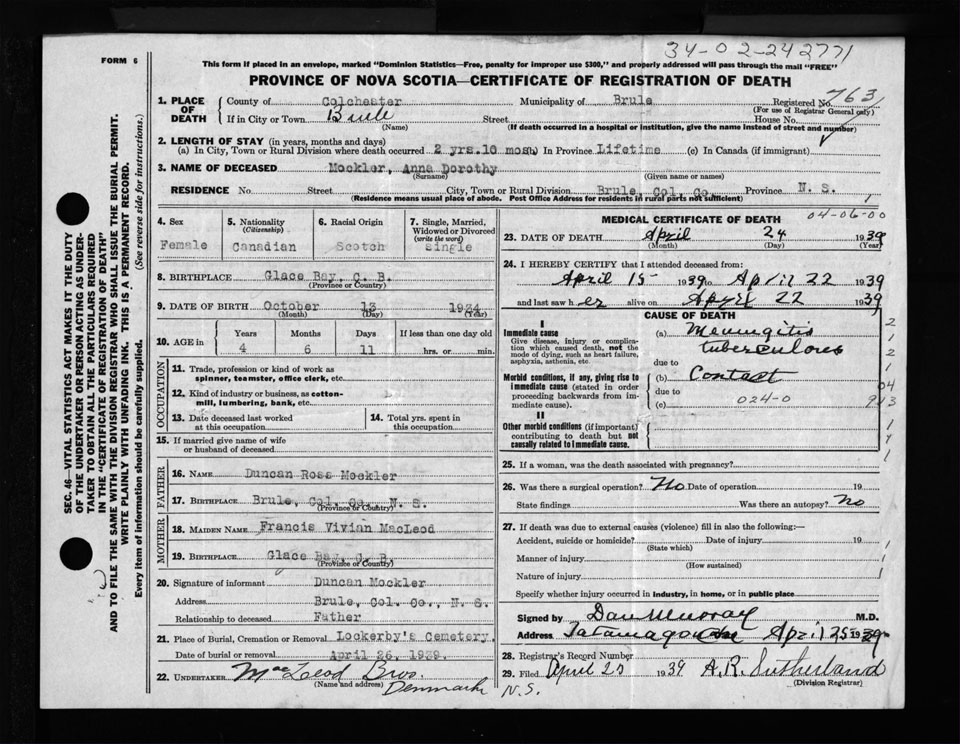 34-02-242771
FORM 6
This form if placed in an envelope, marked "Dominion Statistics—Free, penalty for improper use $300," and properly addressed will pass through the mail "FREE"
PROVINCE OF NOVA SCOTIA—CERTIFICATE OF REGISTRATION OF DEATH
1. PLACE OF DEATH
County of Colchester Municipality of Brule Registered No. 763
(For use of Registrar General only)
If in City or Town Brule Street House No.
(Name) (If death occurred in a hospital or institution, give the name instead of street and number)
2. LENGTH OF STAY (in years, months and days)
(a) In City, Town or Rural Division where death occurred 2 yrs. 10 mos. (b) In Province Lifetime (c) In Canada (if immigrant)
3. NAME OF DECEASED Mockler, Anna Dorothy
(Surname) (Given name or names)
RESIDENCE No. Street City, Town or Rural Division Brule, Col. Co. Province N. S.
(Residence means usual place of abode. Post Office Address for residents in rural parts not sufficient)
4. Sex Female
5. Nationality (Citizenship) Canadian
6. Racial Origin Scotch
7. Single, Married, Widowed or Divorced (write the word) Single
8. BIRTHPLACE Glace Bay, C. B.
(Province or Country)
9. DATE OF BIRTH October 13 1934
(Month) (Day) (Year)
10. AGE in Years Months Days If less than one day old
4 6 11 hrs. or min.
OCCUPATION
11. Trade, profession or kind of work as spinner, teamster, office clerk, etc.
12. Kind of industry or business, as cotton-mill, lumbering, bank, etc.
13. Date deceased last worked at this occupation
14. Total yrs. spent in this occupation
15. If married give name of wife or husband of deceased
FATHER
16. NAME Duncan Ross Mockler
17. BIRTHPLACE Brule, Col. Co., N. S.
(Province or Country)
MOTHER
18. MAIDEN NAME Francis Vivian MacLeod
19. BIRTHPLACE Glace Bay, C. B.
(Province or Country)
20. Signature of informant Duncan Mockler
Address Brule, Col. Co., N. S.
Relationship to deceased Father
21. Place of Burial, Cremation or Removal Lockerby's Cemetery.
Date of burial or removal April 26, 1939.
22. UNDERTAKER MacLeod Bros.
(Name and address) Denmark
N.S.
MEDICAL CERTIFICATE OF DEATH
04-06-00
23. DATE OF DEATH April 24 1939
(Month) (Day) (Year)
24. I HEREBY CERTIFY that I attended deceased from:
April 15 1939 to April 22 1939
and last saw h er alive on April 22 1939
CAUSE OF DEATH
I
Immediate cause
Give disease, injury or complication which caused death, not the mode of dying, such as heart failure, asphyxia, asthenia, etc.
(a) Meningitis
tuberculous
due to
Morbid conditions, if any, giving rise to immediate cause (stated in order proceeding backwards from immediate cause).
(b) Contact
due to
(c) 024-0
II
Other morbid conditions (if important) contributing to death but not causally related to immediate cause.
25. If a woman, was the death associated with pregnancy?
26. Was there a surgical operation? No Date of operation 19
State findings Was there an autopsy? no
27. If death was due to external causes (violence) fill in also the following:—
Accident, suicide or homicide? Date of injury 19
(State which)
Manner of injury
(How sustained)
Nature of injury
Specify whether injury occurred in industry, in home, or in public place
Signed by Dan Murray M.D.
Address Tatamagouche April 25 1939
28. Registrar's Record Number
29. Filed April 25 1939 A.R. Sutherland
(Division Registrar)
SEC. 46—VITAL STATISTICS ACT MAKES IT THE DUTY
OF THE UNDERTAKER OR PERSON ACTING AS UNDERTAKER TO OBTAIN ALL THE PARTICULARS REQUIRED
IN THE "CERTIFICATE OF REGISTRATION OF DEATH"
AND TO FILE THE SAME WITH THE DIVISION REGISTRAR WHO SHALL ISSUE THE BURIAL PERMIT.
WRITE PLAINLY WITH UNFADING INK. THIS IS A PERMANENT RECORD.
Every item of information should be carefully supplied. (See reverse side for instructions.)